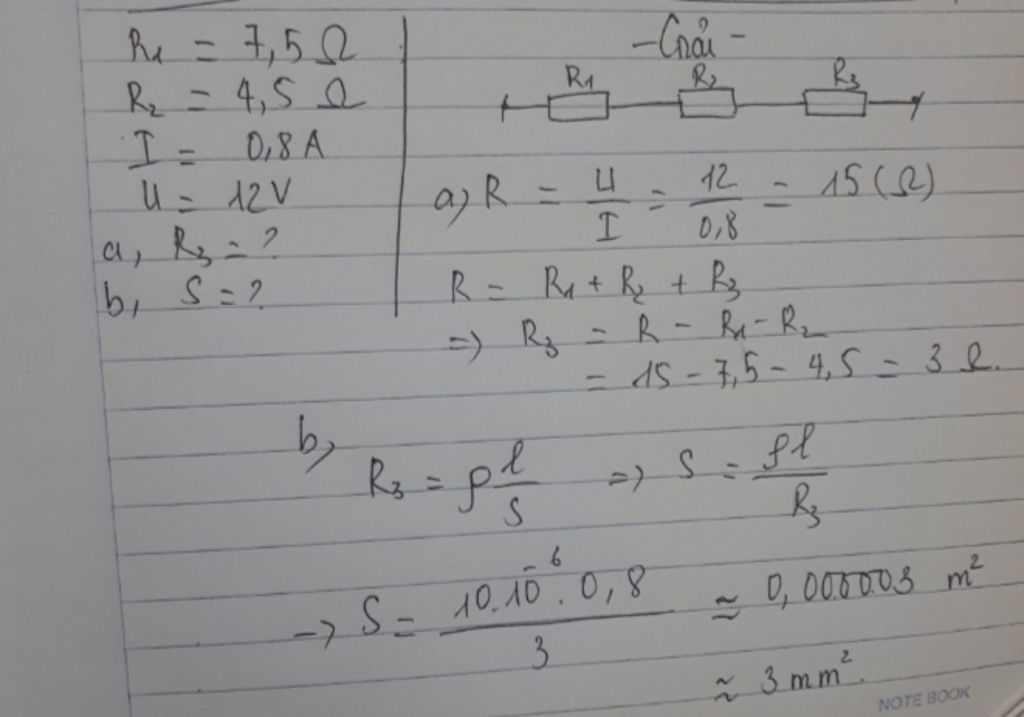 R₁ = 7,5 Ω
R₂ = 4,5 Ω
I = 0,8 A
U = 12 V
a, R₃ = ?
b, S = ?
- Giải -
R₁ R₂ R₃
a, R = U/I = 12/0,8 = 15 (Ω)
R = R₁ + R₂ + R₃
=> R₃ = R - R₁ - R₂
= 15 - 7,5 - 4,5 = 3 Ω.
b,
R₃ = ρ l/S => S = ρl/R₃
-> S = 10.10⁻⁶.0,8/3 ≈ 0,000003 m²
≈ 3 mm².
NOTE BOOK